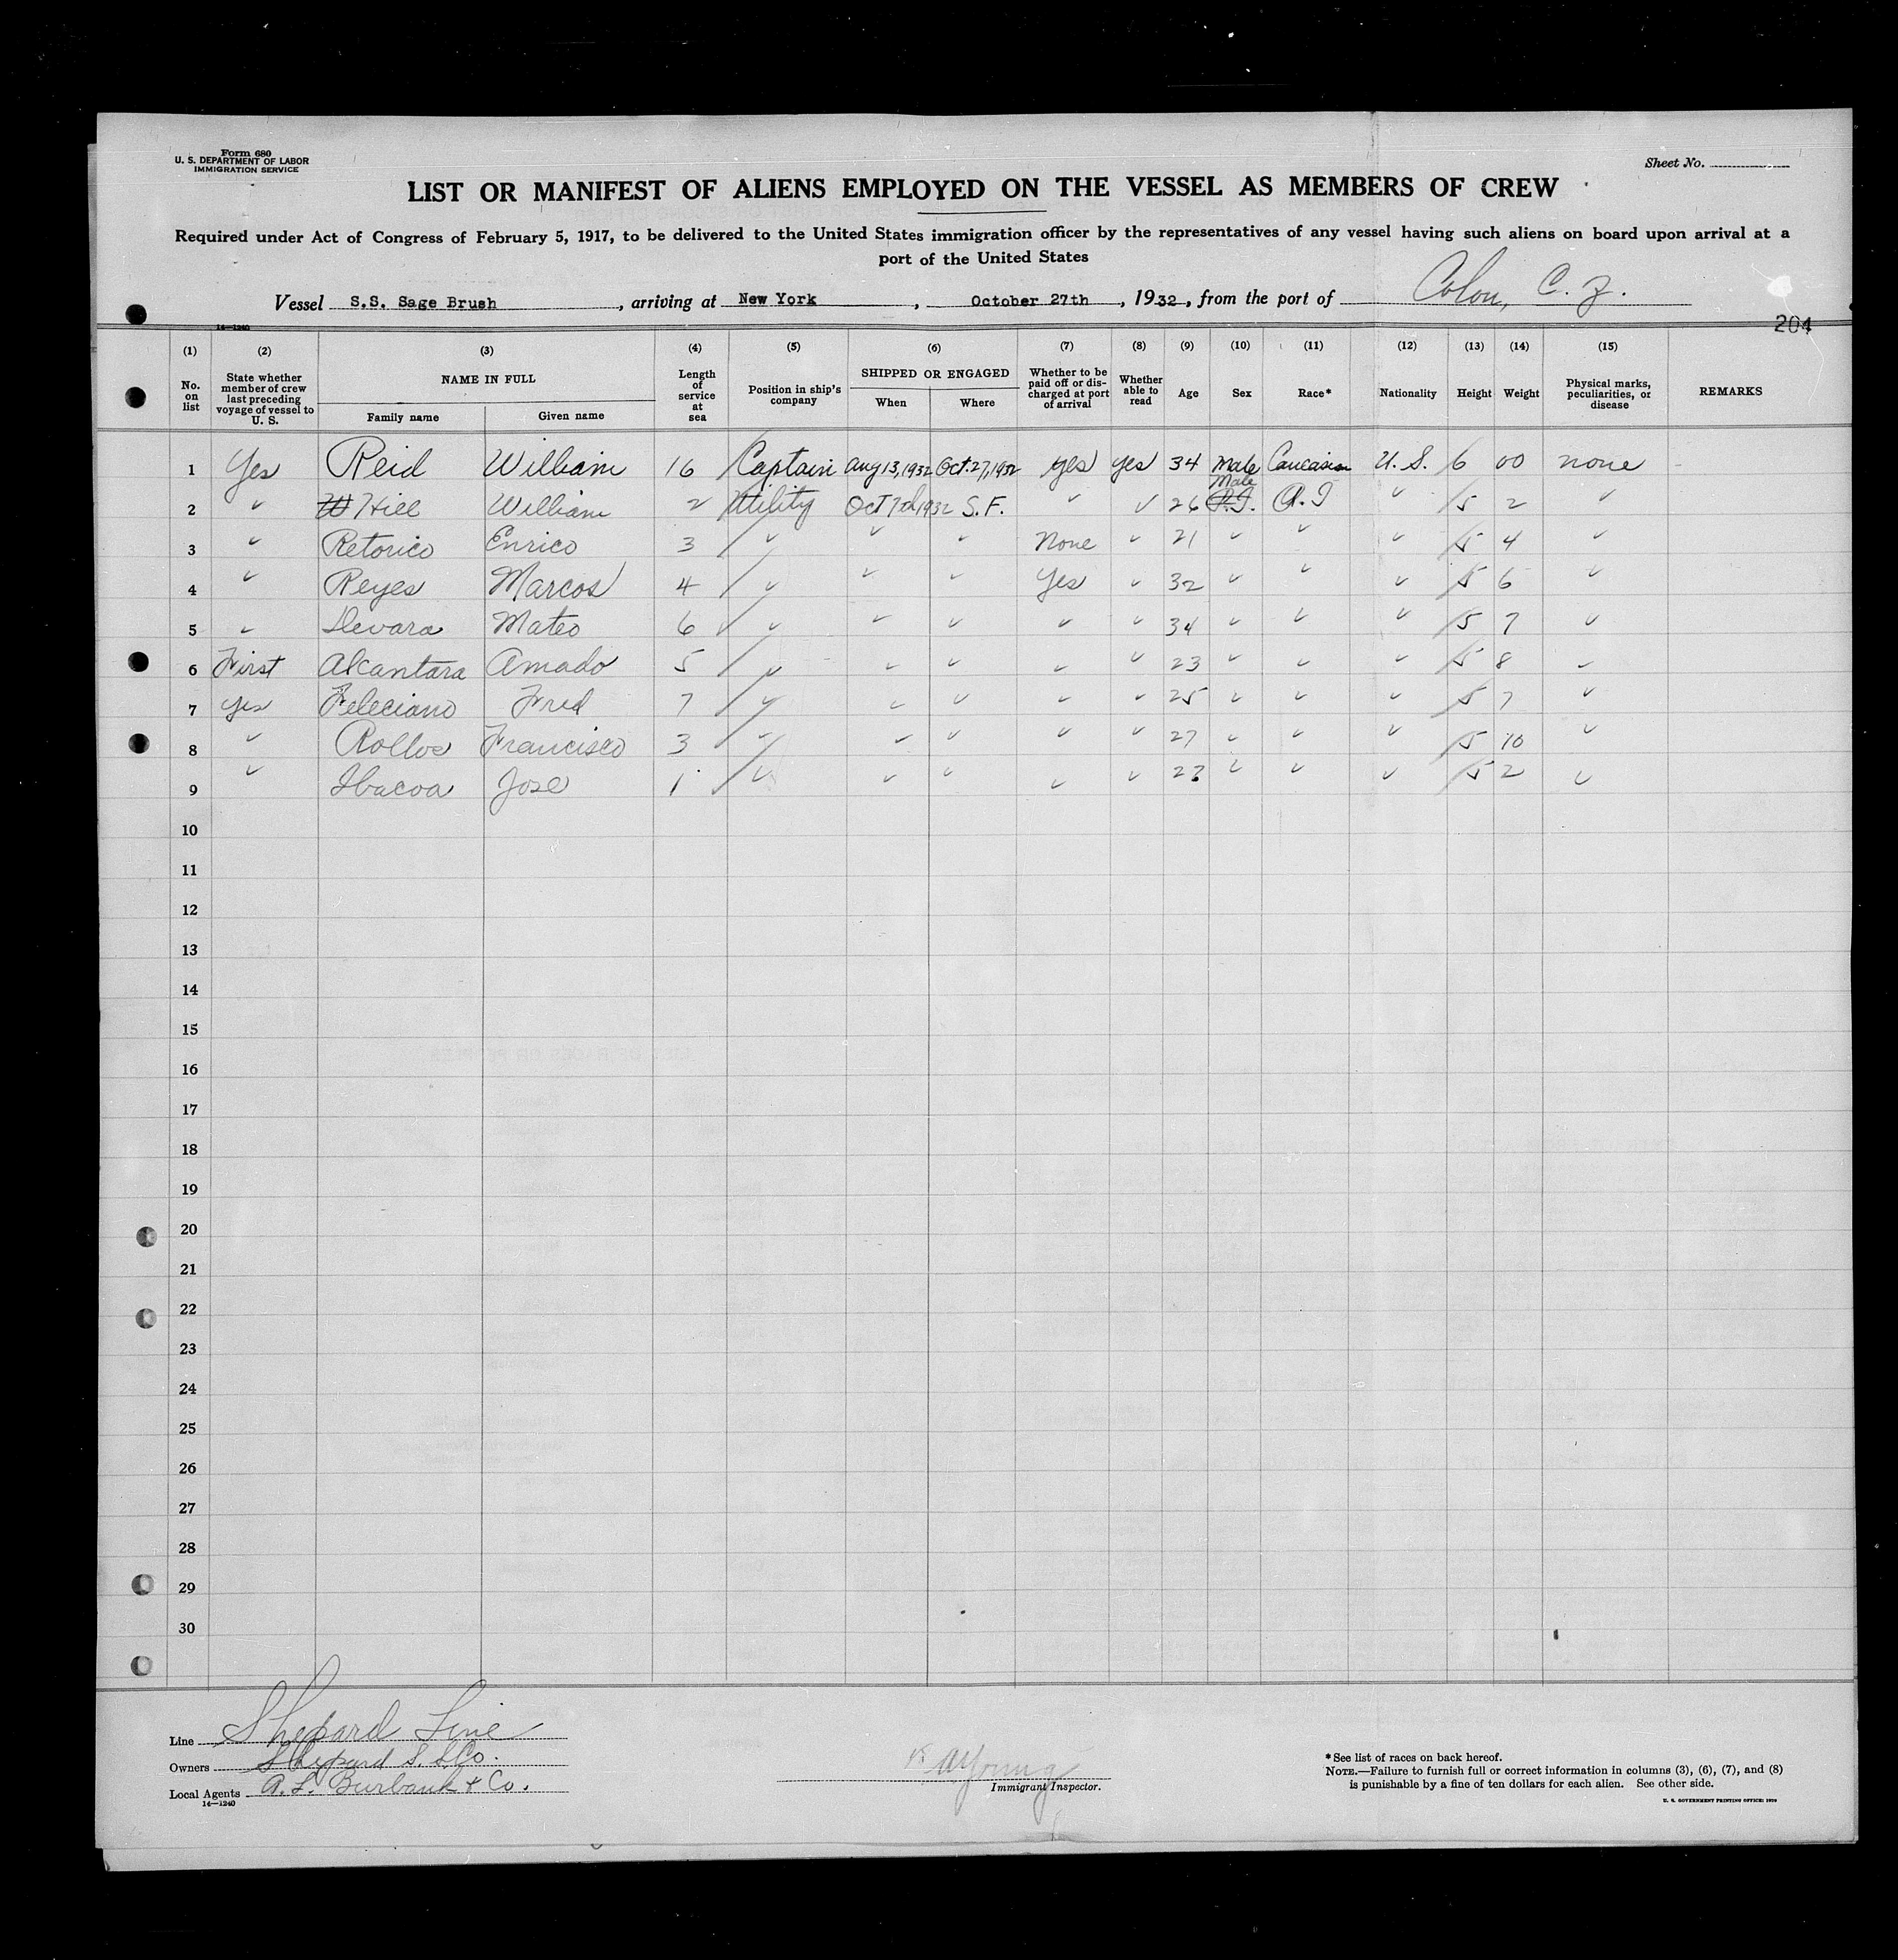 Form 680
U. S. DEPARTMENT OF LABOR
IMMIGRATION SERVICE
Sheet No.
LIST OR MANIFEST OF ALIENS EMPLOYED ON THE VESSEL AS MEMBERS OF CREW
Required under Act of Congress of February 5, 1917, to be delivered to the United States immigration officer by the representatives of any vessel having such aliens on board upon arrival at a
port of the United States
Vessel S.S. Sage Brush, arriving at New York, October 27th, 1932, from the port of Colon, C. Z.
14—1240
204
(1) (2) (3) (4) (5) (6) (7) (8) (9) (10) (11) (12) (13) (14) (15)
No. on list State whether member of crew last preceding voyage of vessel to U. S. NAME IN FULL Family name Given name Length of service at sea Position in ship's company SHIPPED OR ENGAGED When Where Whether to be paid off or discharged at port of arrival Whether able to read Age Sex Race* Nationality Height Weight Physical marks, peculiarities, or disease REMARKS
1 Yes Reid William 16 Captain Aug 13, 1932 Oct. 27, 1932 yes yes 34 Male Caucasian U. S. 6 00 none
2 ✓ Hill William 2 Utility Oct 7th 1932 S. F. ✓ ✓ 26 Male P. I. ✓ 5 2 ✓
3 ✓ Retorico Enrico 3 ✓ ✓ ✓ None ✓ 21 ✓ ✓ ✓ 5 4 ✓
4 ✓ Reyes Marcos 4 ✓ ✓ ✓ Yes ✓ 32 ✓ ✓ ✓ 5 6 ✓
5 ✓ Devara Mateo 6 ✓ ✓ ✓ ✓ ✓ 34 ✓ ✓ ✓ 5 7 ✓
6 First Alcantara Amado 5 ✓ ✓ ✓ ✓ ✓ 23 ✓ ✓ ✓ 5 8 ✓
7 yes Feleciano Fred 7 ✓ ✓ ✓ ✓ ✓ 25 ✓ ✓ ✓ 5 7 ✓
8 ✓ Francisco 3 ✓ ✓ ✓ ✓ ✓ 27 ✓ ✓ ✓ 5 10 ✓
9 ✓ Ibacoa Jose 1 ✓ ✓ ✓ ✓ ✓ ✓ ✓ ✓ 5 2 ✓
10
11
12
13
14
15
16
17
18
19
20
21
22
23
24
25
26
27
28
29
30
Line Shepard Line
Owners Shepard S. S. Co.
Local Agents A. L. Burbank & Co.
14—1240
Young
Immigrant Inspector.
*See list of races on back hereof.
NOTE.—Failure to furnish full or correct information in columns (3), (6), (7), and (8)
is punishable by a fine of ten dollars for each alien. See other side.
U. S. GOVERNMENT PRINTING OFFICE: